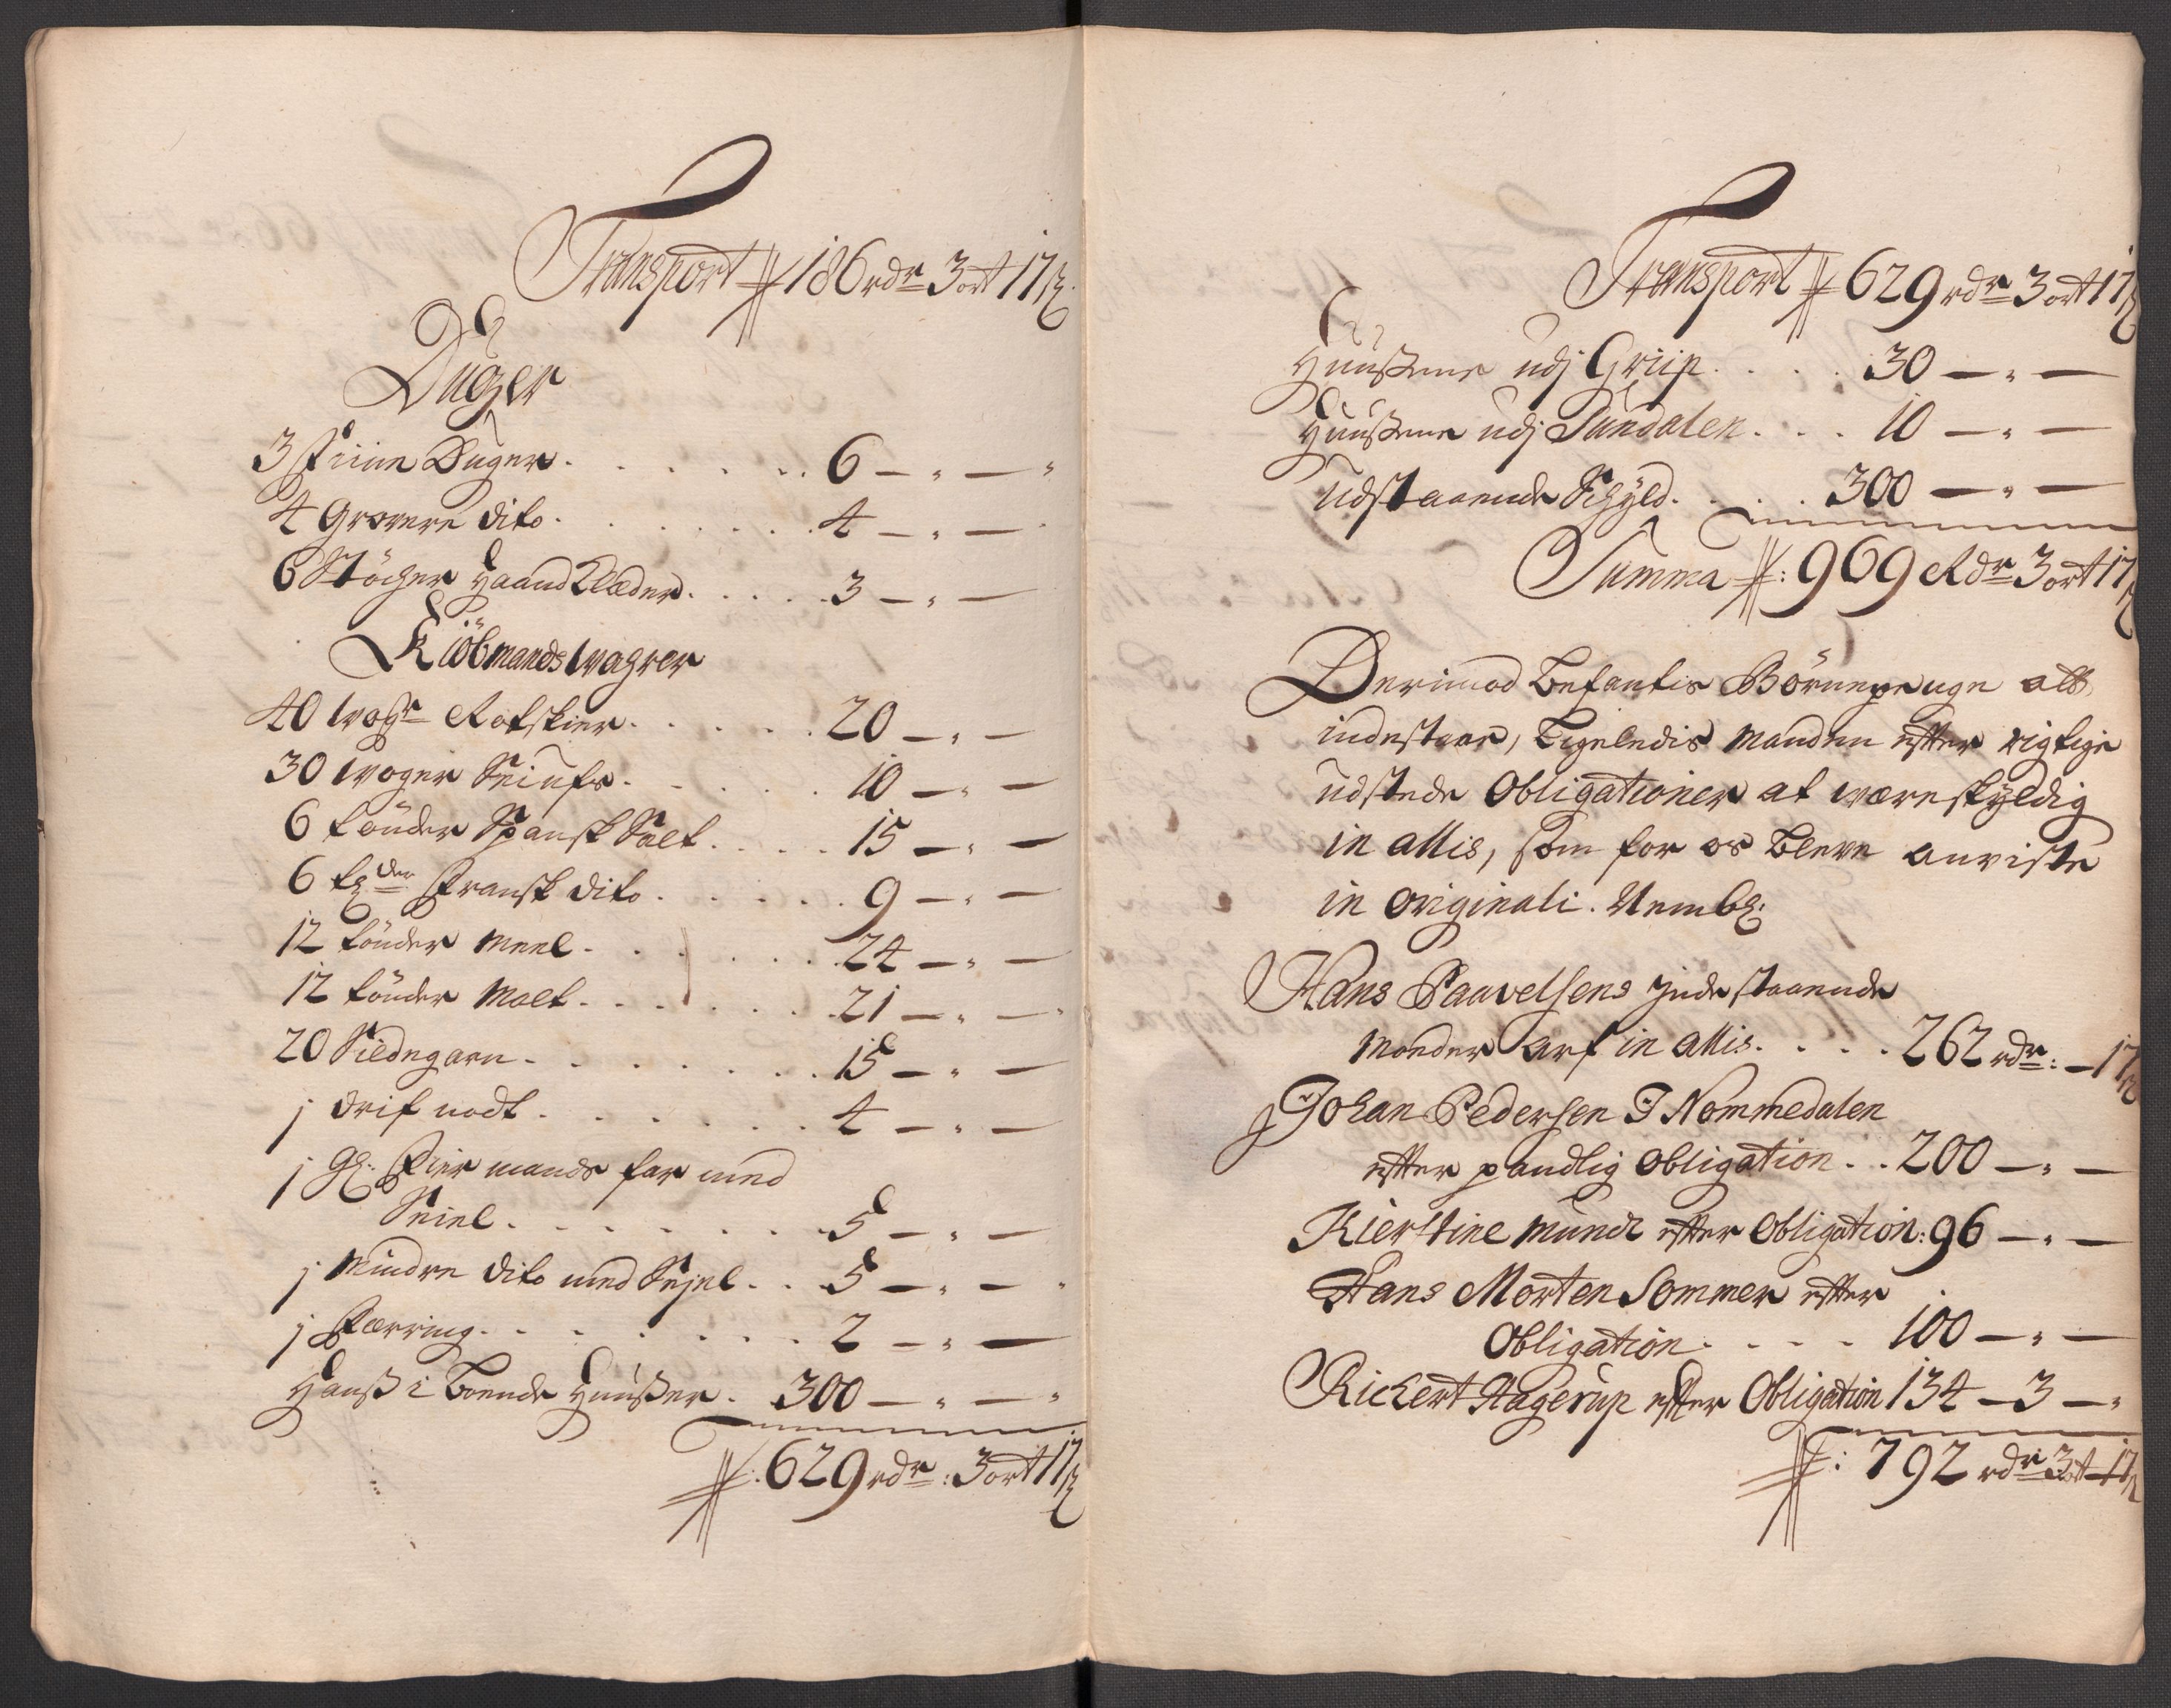 Transport 186 rdr 3 ort 17 ß
Duger
3 Fiine Duger . . . . . . 6 — " — "
4 Grovere dito . . . . . . 4 — " —
6 Støcher haand Klæder . . . . . 3 — " —
Kiöbmands wahrer
40 wogr Rotskier . . . . . 20 — " —
30 woger . . . . . 10 — " —
6 tönder Spansk Salt . . . . 15 — " —
6 tdr Fransk dito . . . . . 9 — " —
12 tönder Meel . . . . . . 24 — " —
12 tönder Malt . . . . . . 21 — " —
20 Sildegarn . . . . . . . 15 — " —
j drif nodt . . . . . . . 4 — " —
j gl: Fiirmands far med
Seiel . . . . . . . 5 — " —
j Mindre dito med Sejel . . 5 — " —
j Færring . . . . . . . . 2 — " —
Hanß i boende Huußer . 300 — " — "
629 rdr: 3 ort 17 ß
Transport 629 rdr 3 ort 17 ß
Huußene udj Griip . . . . 30 — " —
Huußene udj Sundalen . . . 10 — " —
Udstaaende Schyld . . . . 300 — " —
Summa: 969 Rdr 3 ort 17 ß
Derimod befantis Börnepenge att
indestaar, ligeledis Manden efter rigtige
udstede Obligationer at være skyldig
in allis, som for os bleve anviste
in originali. Nembl:
Hans Paavelsens Jndestaaende
Moeder Arf in allis . . . . 262 rdr: — 17 ß
Johan Pedersen I Nommedalen
efter pandlig obligation . . 200 — " —
Kierstine Mundt efter Obligation: 96 — " —
Hans Morten Sommer efter
Obligation . . . . 100 — " —
Rickert Hagerup efter Obligation 134 — 3 — "
: 792 rdr 3 ort 17 ß